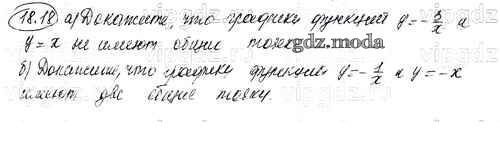 18.18 а) Докажите, что графики функций y = -5/x и
y = x не имеют общие точек gdz.moda
б) Докажите, что графики функций y = -1/x и y = -x
имеют две общие точки.